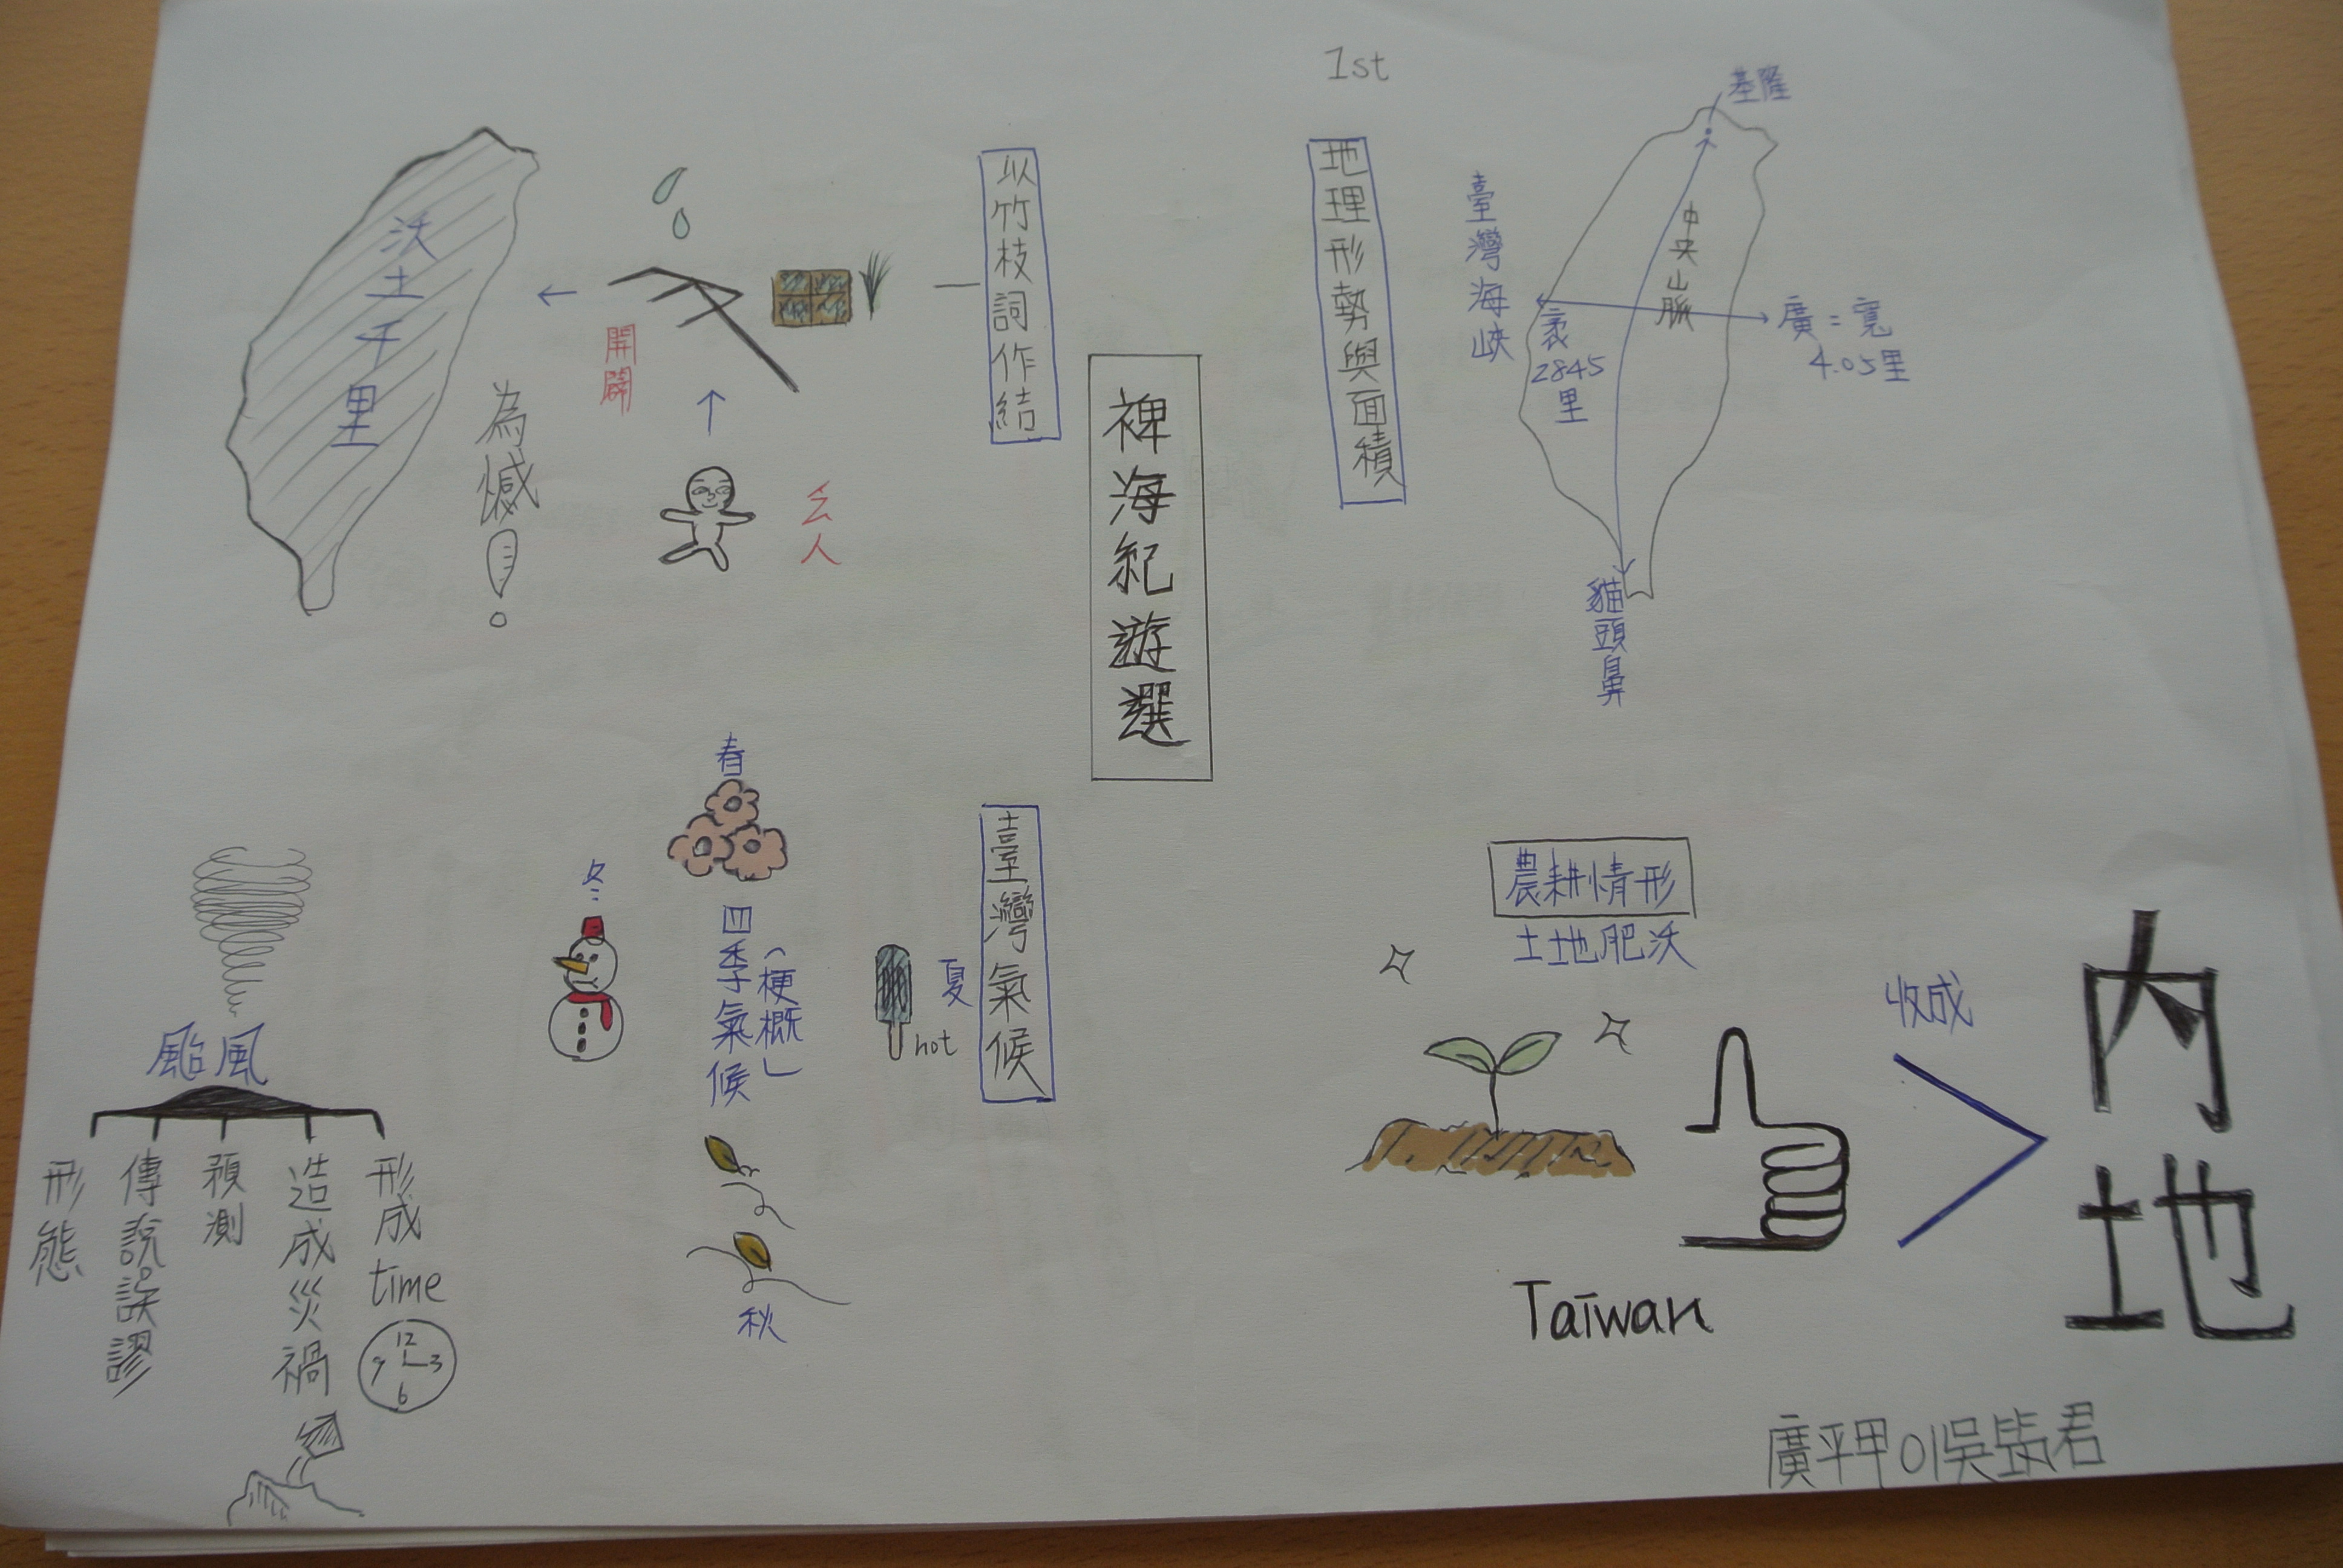 1st
裨海紀遊選
地理形勢與面積
基隆
臺灣海峽
中央山脈
廣=寬
4.05里
袤
2845
里
貓頭鼻
農耕情形
土地肥沃
收成
內地
Taiwan
臺灣氣候
春
夏
hot
四季氣候
(梗概」
冬
秋
颱風
形成
time
12
3
6
9
造成災禍
預測
傳說誤謬
形態
以竹枝詞作結
開闢
沃土千里
為憾!
廣平甲01吳
君